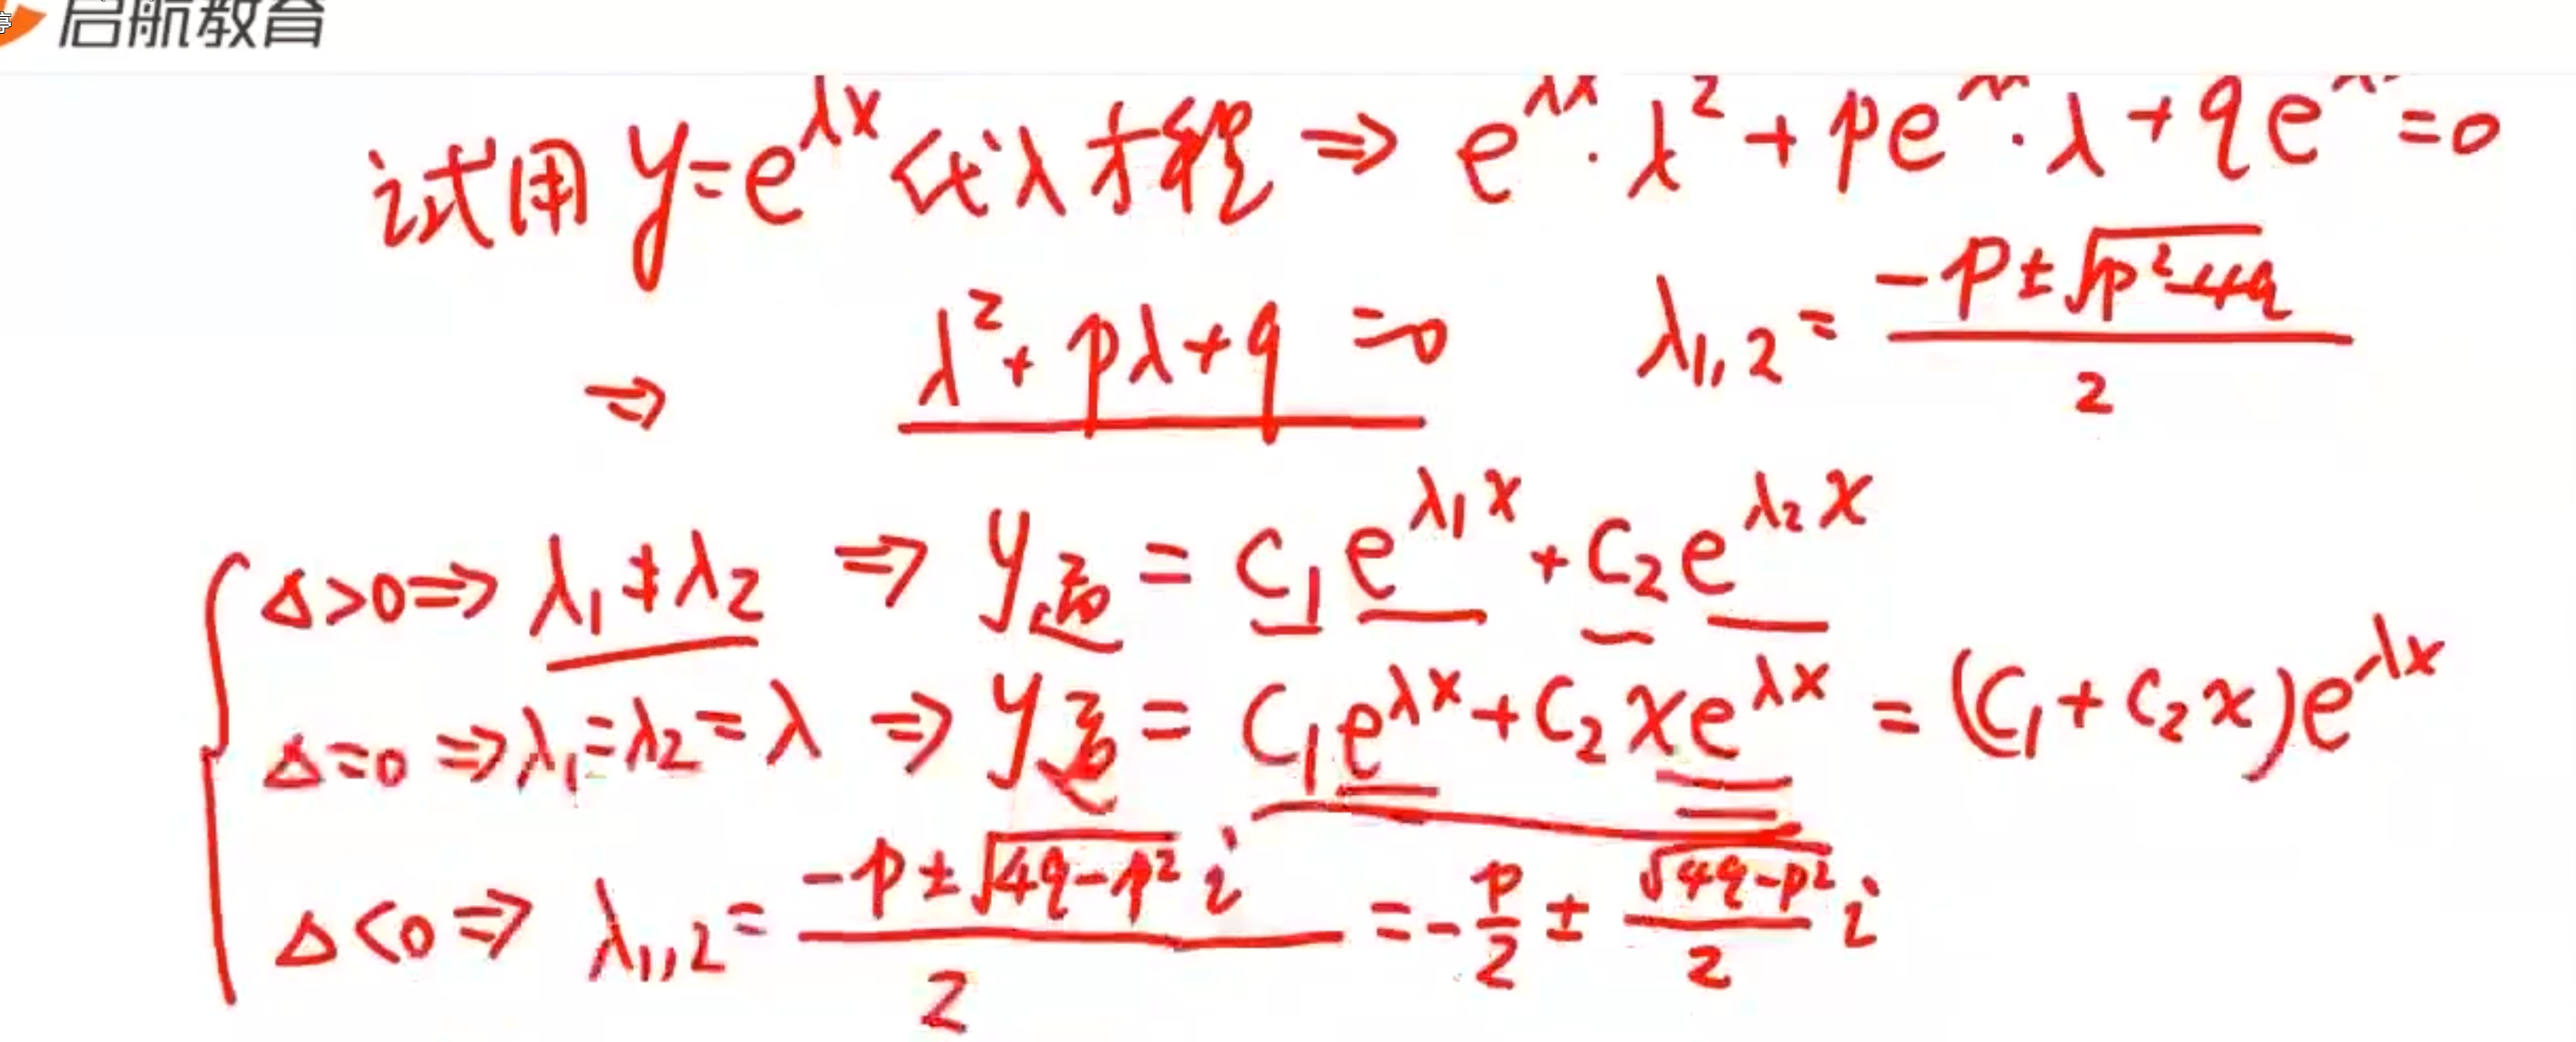 启航教育
试用 y=e^{λx} 代入方程 ⇒ e^{λx}·λ²+pe^{λx}·λ+qe^{λx}=0
⇒ λ²+pλ+q=0 λ₁,₂=(-p±√(p²-4q))/2
Δ>0⇒λ₁≠λ₂ ⇒ y通=C₁e^{λ₁x}+C₂e^{λ₂x}
Δ=0⇒λ₁=λ₂=λ ⇒ y通=C₁e^{λx}+C₂xe^{λx}=(C₁+C₂x)e^{λx}
Δ<0⇒λ₁,₂=(-p±√(4q-p²) i)/2=-p/2±(√(4q-p²)/2) i